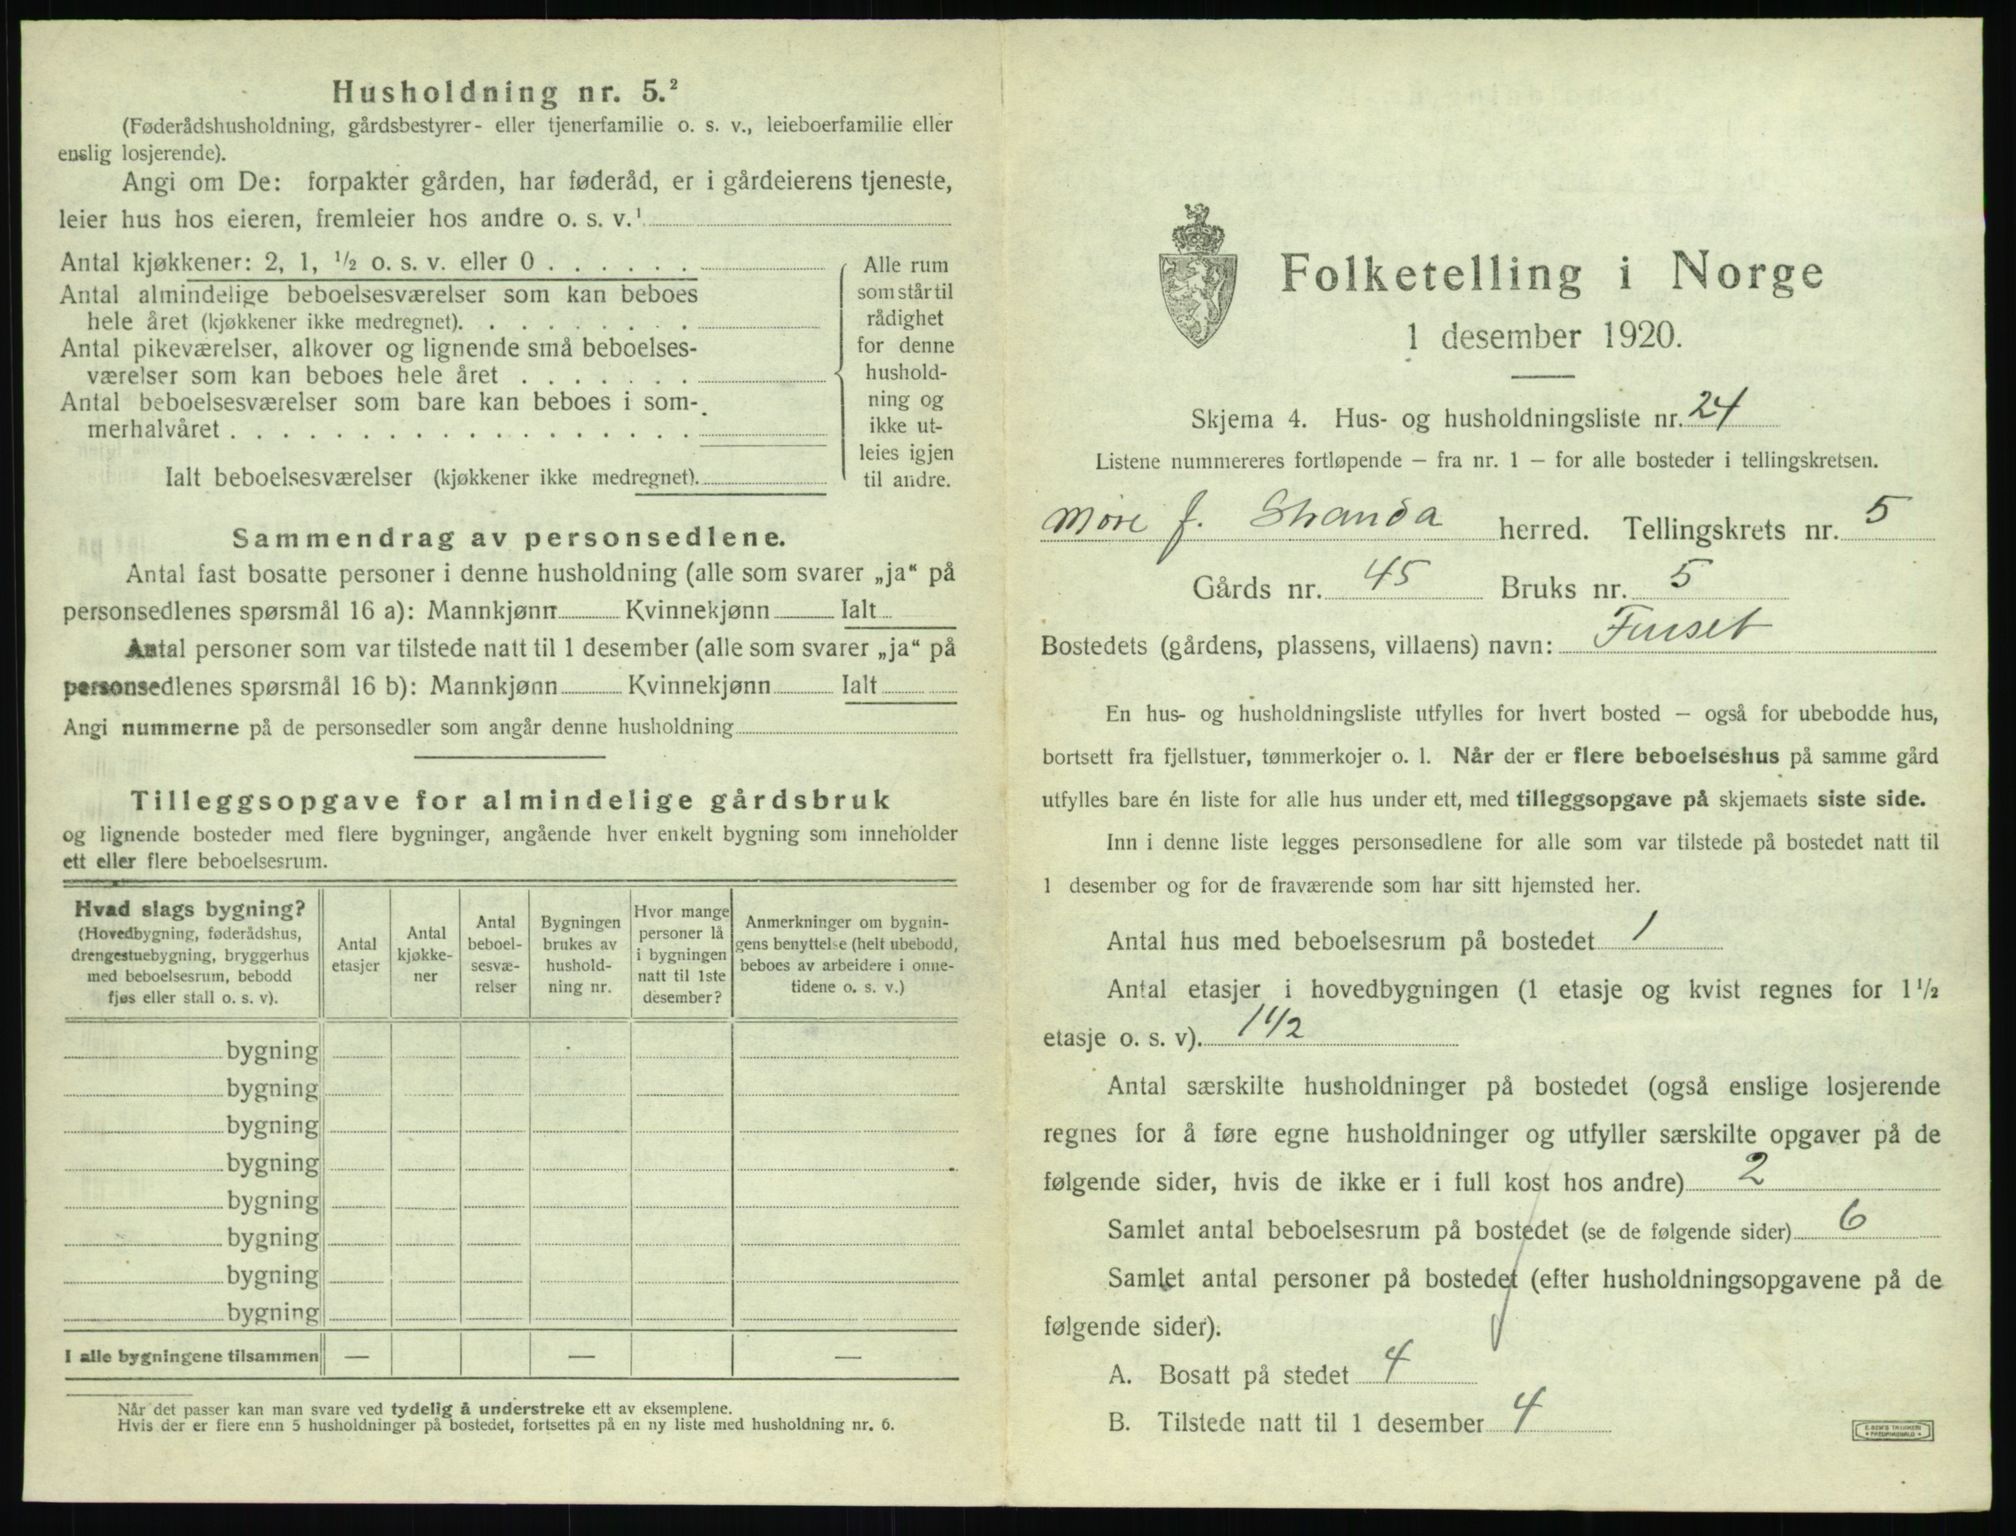 Husholdning nr. 5.²
(Føderådshusholdning, gårdsbestyrer- eller tjenerfamilie o. s. v., leieboerfamilie eller
enslig losjerende).
Angi om De: forpakter gården, har føderåd, er i gårdeierens tjeneste,
leier hus hos eieren, fremleier hos andre o. s. v.¹
Antal kjøkkener: 2, 1, ½ o. s. v. eller 0 . . . . . .
Antal almindelige beboelsesværelser som kan beboes
hele året (kjøkkener ikke medregnet). . . . . . . . .
Antal pikeværelser, alkover og lignende små beboelses-
værelser som kan beboes hele året . . . . . . .
Antal beboelsesværelser som bare kan beboes i som-
merhalvåret . . . . . . . . . . . . . . . . . .
Ialt beboelsesværelser (kjøkkener ikke medregnet).
Alle rum
som står til
rådighet
for denne
hushold-
ning og
ikke ut-
leies igjen
til andre.
Sammendrag av personsedlene.
Antal fast bosatte personer i denne husholdning (alle som svarer „ja“ på
personsedlenes spørsmål 16 a): Mannkjønn Kvinnekjønn Ialt
Antal personer som var tilstede natt til 1 desember (alle som svarer „ja“ på
personsedlenes spørsmål 16 b): Mannkjønn Kvinnekjønn Ialt
Angi nummerne på de personsedler som angår denne husholdning
Tilleggsopgave for almindelige gårdsbruk
og lignende bosteder med flere bygninger, angående hver enkelt bygning som inneholder
ett eller flere beboelsesrum.
Hvad slags bygning?
(Hovedbygning, føderådshus,
drengestuebygning, bryggerhus
med beboelsesrum, bebodd
fjøs eller stall o. s. v).
Antal
etasjer
Antal
kjøkke-
ner
Antal
beboel-
sesvæ-
relser
Bygningen
brukes av
hushold-
ning nr.
Hvor mange
personer lå
i bygningen
natt til 1ste
desember?
Anmerkninger om bygnin-
gens benyttelse (helt ubebodd,
beboes av arbeidere i onne-
tidene o. s. v.)
bygning
bygning
bygning
bygning
bygning
bygning
bygning
bygning
I alle bygningene tilsammen — — —
Når det passer kan man svare ved tydelig å understreke ett av eksemplene.
Hvis der er flere enn 5 husholdninger på bostedet, fortsettes på en ny liste med husholdning nr. 6.
Folketelling i Norge
1 desember 1920.
Skjema 4. Hus- og husholdningsliste nr. 24
Listene nummereres fortløpende — fra nr. 1 — for alle bosteder i tellingskretsen.
Møre f. Stranda herred. Tellingskrets nr. 5
Gårds nr. 45 Bruks nr. 5
Bostedets (gårdens, plassens, villaens) navn: Finset
En hus- og husholdningsliste utfylles for hvert bosted — også for ubebodde hus,
bortsett fra fjellstuer, tømmerkojer o. l. Når der er flere beboelseshus på samme gård
utfylles bare én liste for alle hus under ett, med tilleggsopgave på skjemaets siste side.
Inn i denne liste legges personsedlene for alle som var tilstede på bostedet natt til
1 desember og for de fraværende som har sitt hjemsted her.
Antal hus med beboelsesrum på bostedet 1
Antal etasjer i hovedbygningen (1 etasje og kvist regnes for 1½
etasje o. s. v). 1½
Antal særskilte husholdninger på bostedet (også enslige losjerende
regnes for å føre egne husholdninger og utfyller særskilte opgaver på de
følgende sider, hvis de ikke er i full kost hos andre) 2
Samlet antal beboelsesrum på bostedet (se de følgende sider) 6
Samlet antal personer på bostedet (efter husholdningsopgavene på de
følgende sider).
A. Bosatt på stedet 4
B. Tilstede natt til 1 desember 4